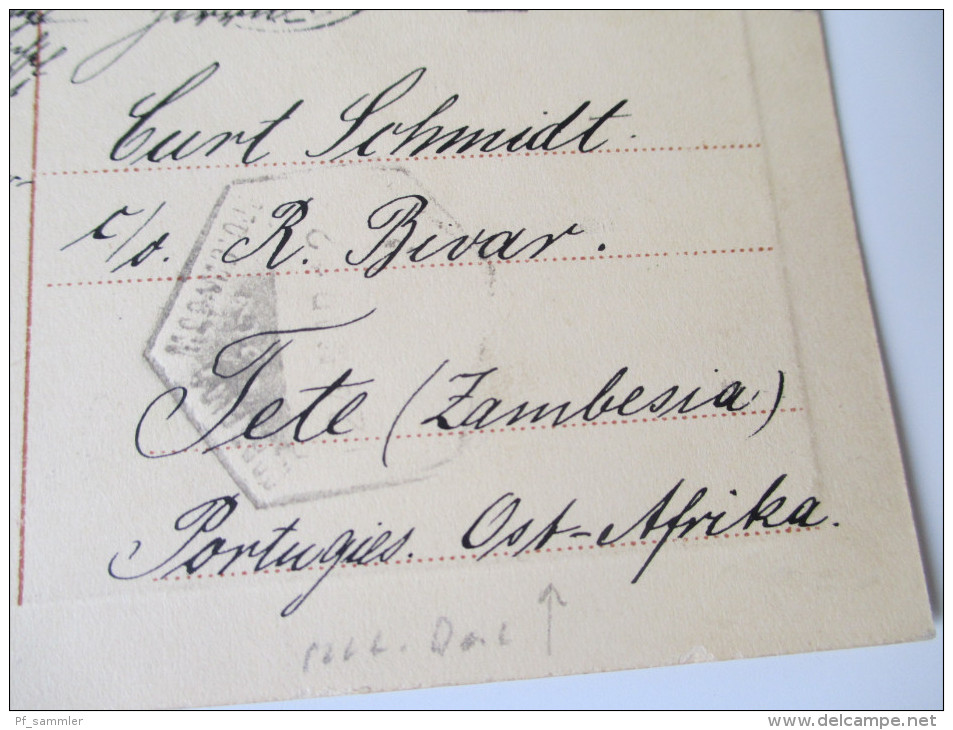 Curt Schmidt.
c/o. R. Bivar.
Tete (Zambesia)
Portugies. Ost-Afrika.
MOÇAMBIQUE
Pf_sammler
www.delcampe.net